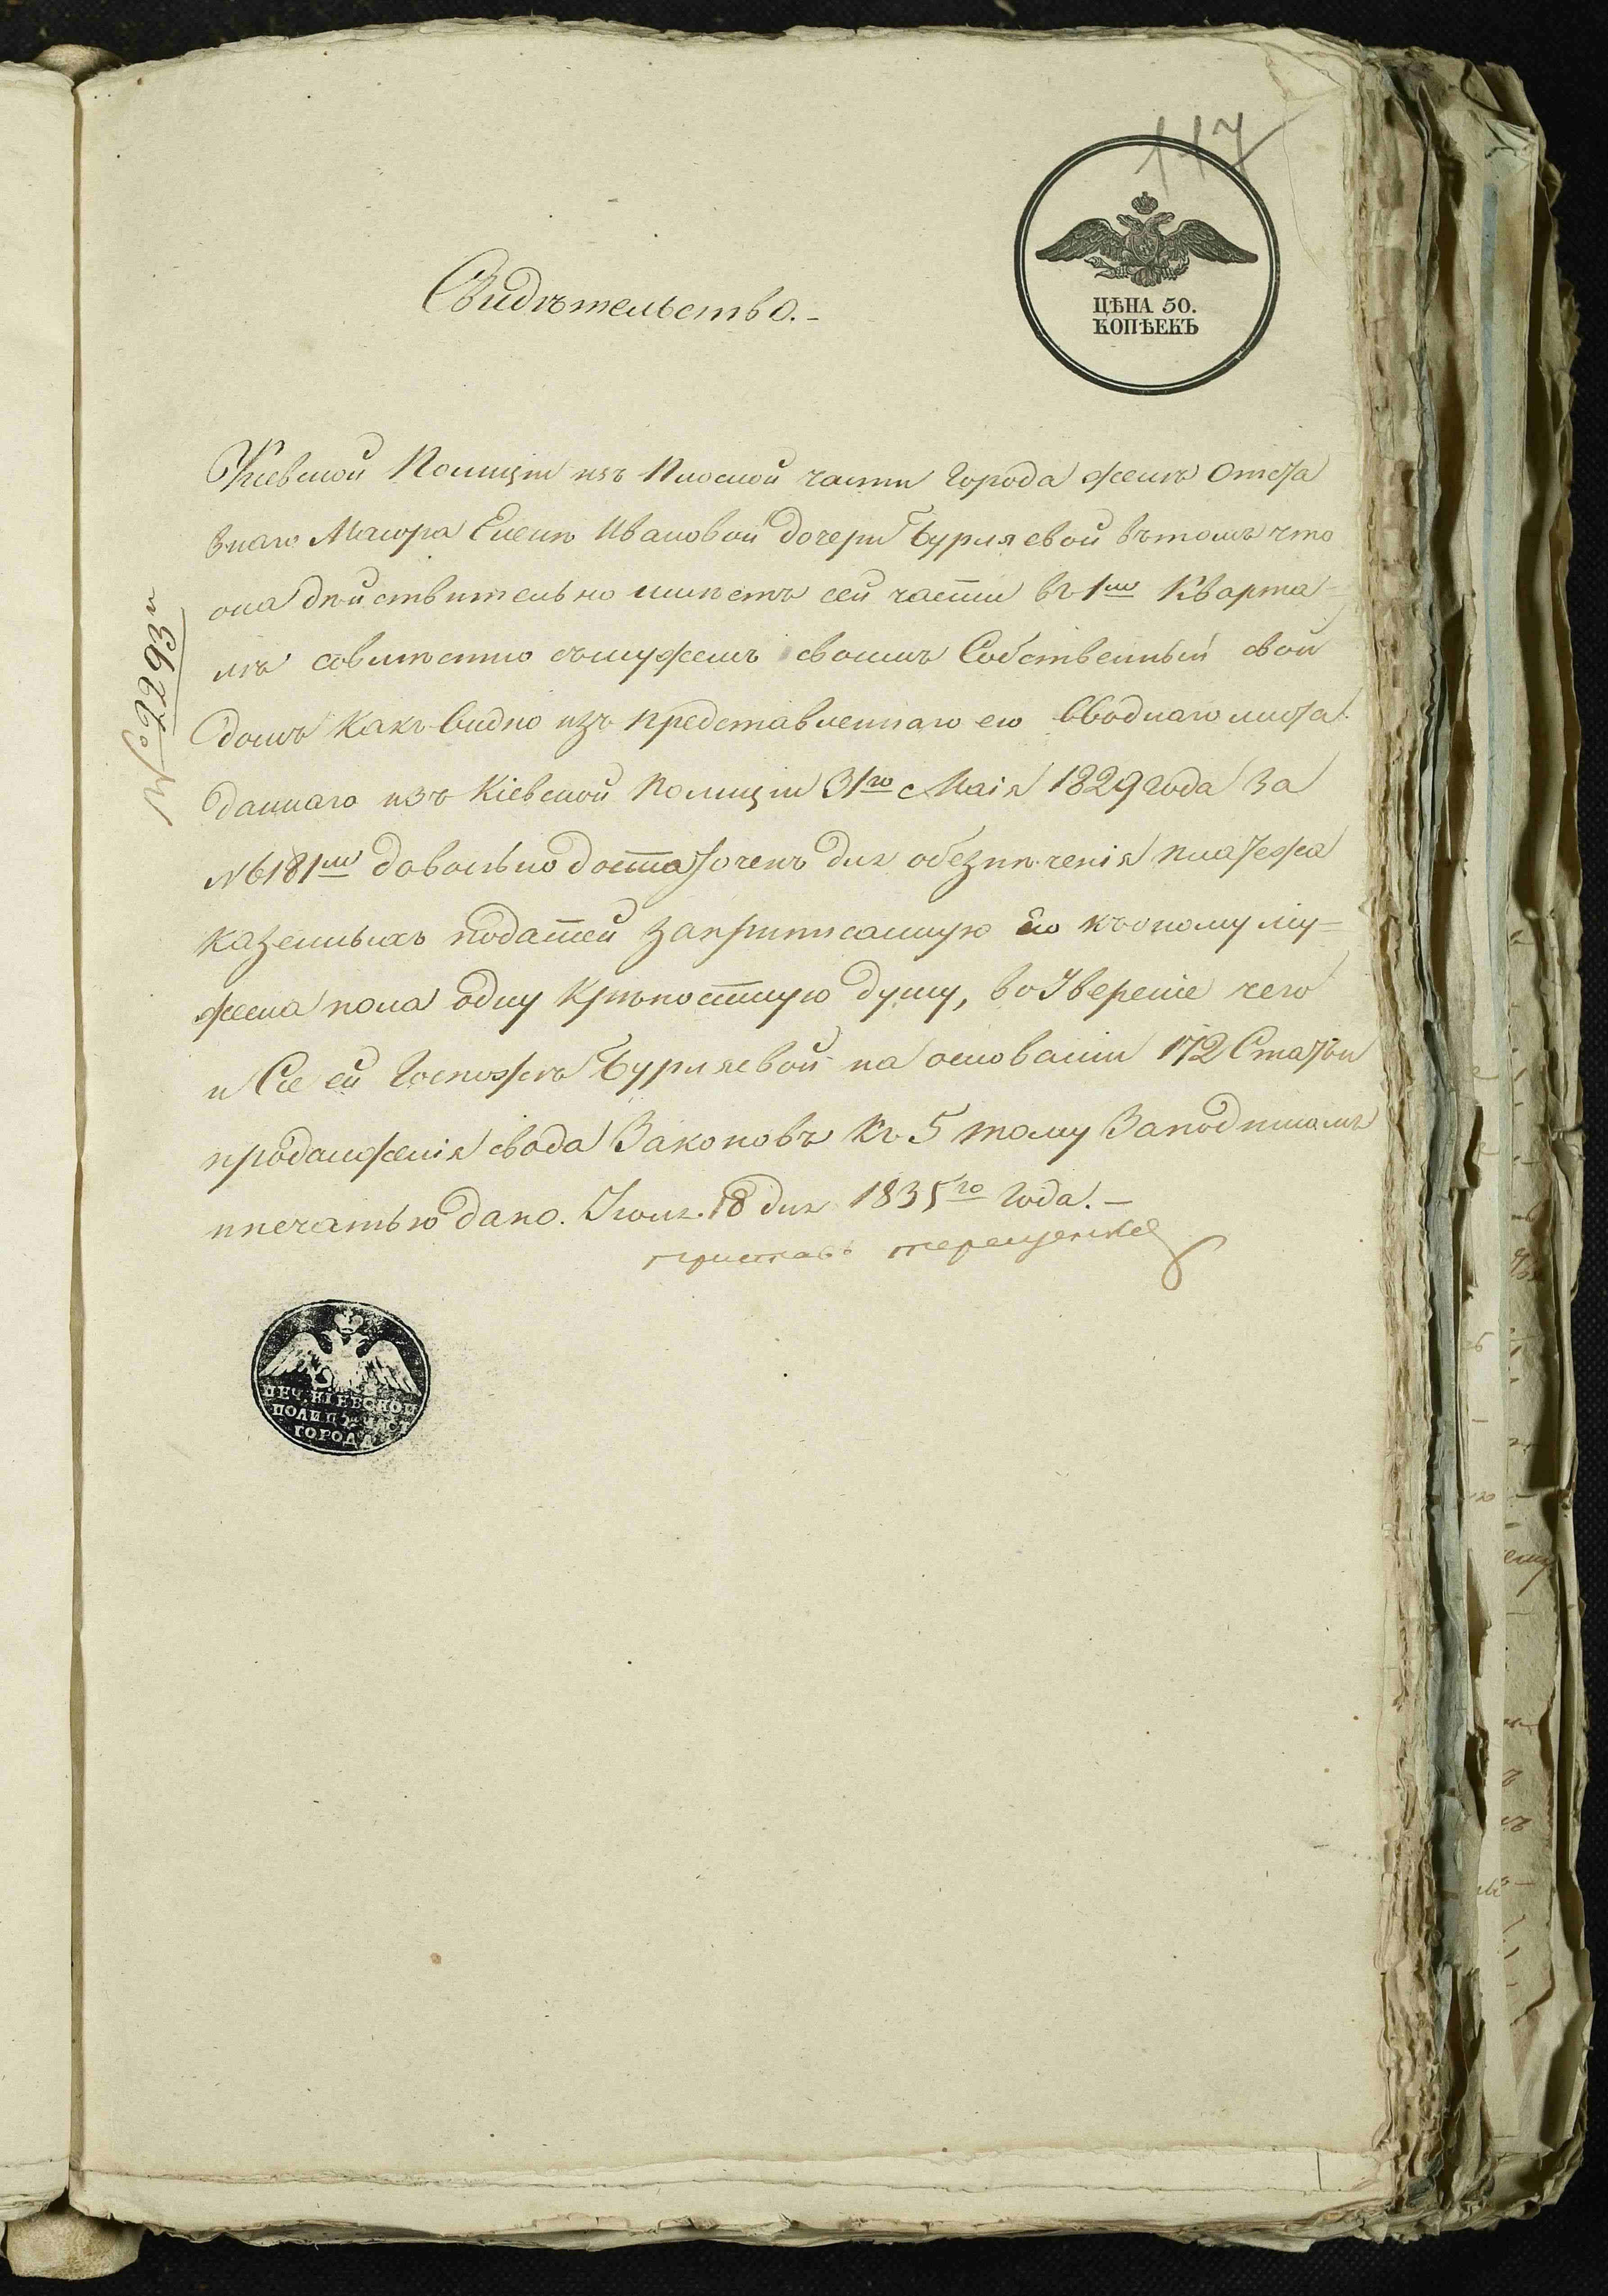 117
ЦѢНА 50.
КОПѢЕКЪ
Свидѣтельство.-
Кіевской Полиціи изъ Плоской части Города женѣ Отста
внаго Маіора Еленѣ Ивановой дочери Бурляевой вътомъ что
она дѣйствительно имѣетъ сей части въ 1мъ Кварта=
лѣ совмѣстно съмужемъ своимъ Собственный свой
домъ Какъ видно изъ представленнаго ею вводнаго листа
даннаго изъ Кіевской Полиціи 31го Маія 1829 года За
№ 6181мъ довольно достаточенъ для обезпеченія платежа
казенныхъ податей заприписанную Ею къоному му=
жеска пола одну Крѣпостную душу, во Увереніе чего
и Сіе ей Госпожѣ Бурляевой на основаніи 172 Статьи
продолженія свода Законовъ Къ 5 тому Заподписомъ
ипечатью дано. Іюля. 18 дня 1835го Года.-
приставъ терещенко
№ 2293й
ПЕЧ. КІЕВСКОЙ
ПОЛИЦ
ГОРОДА